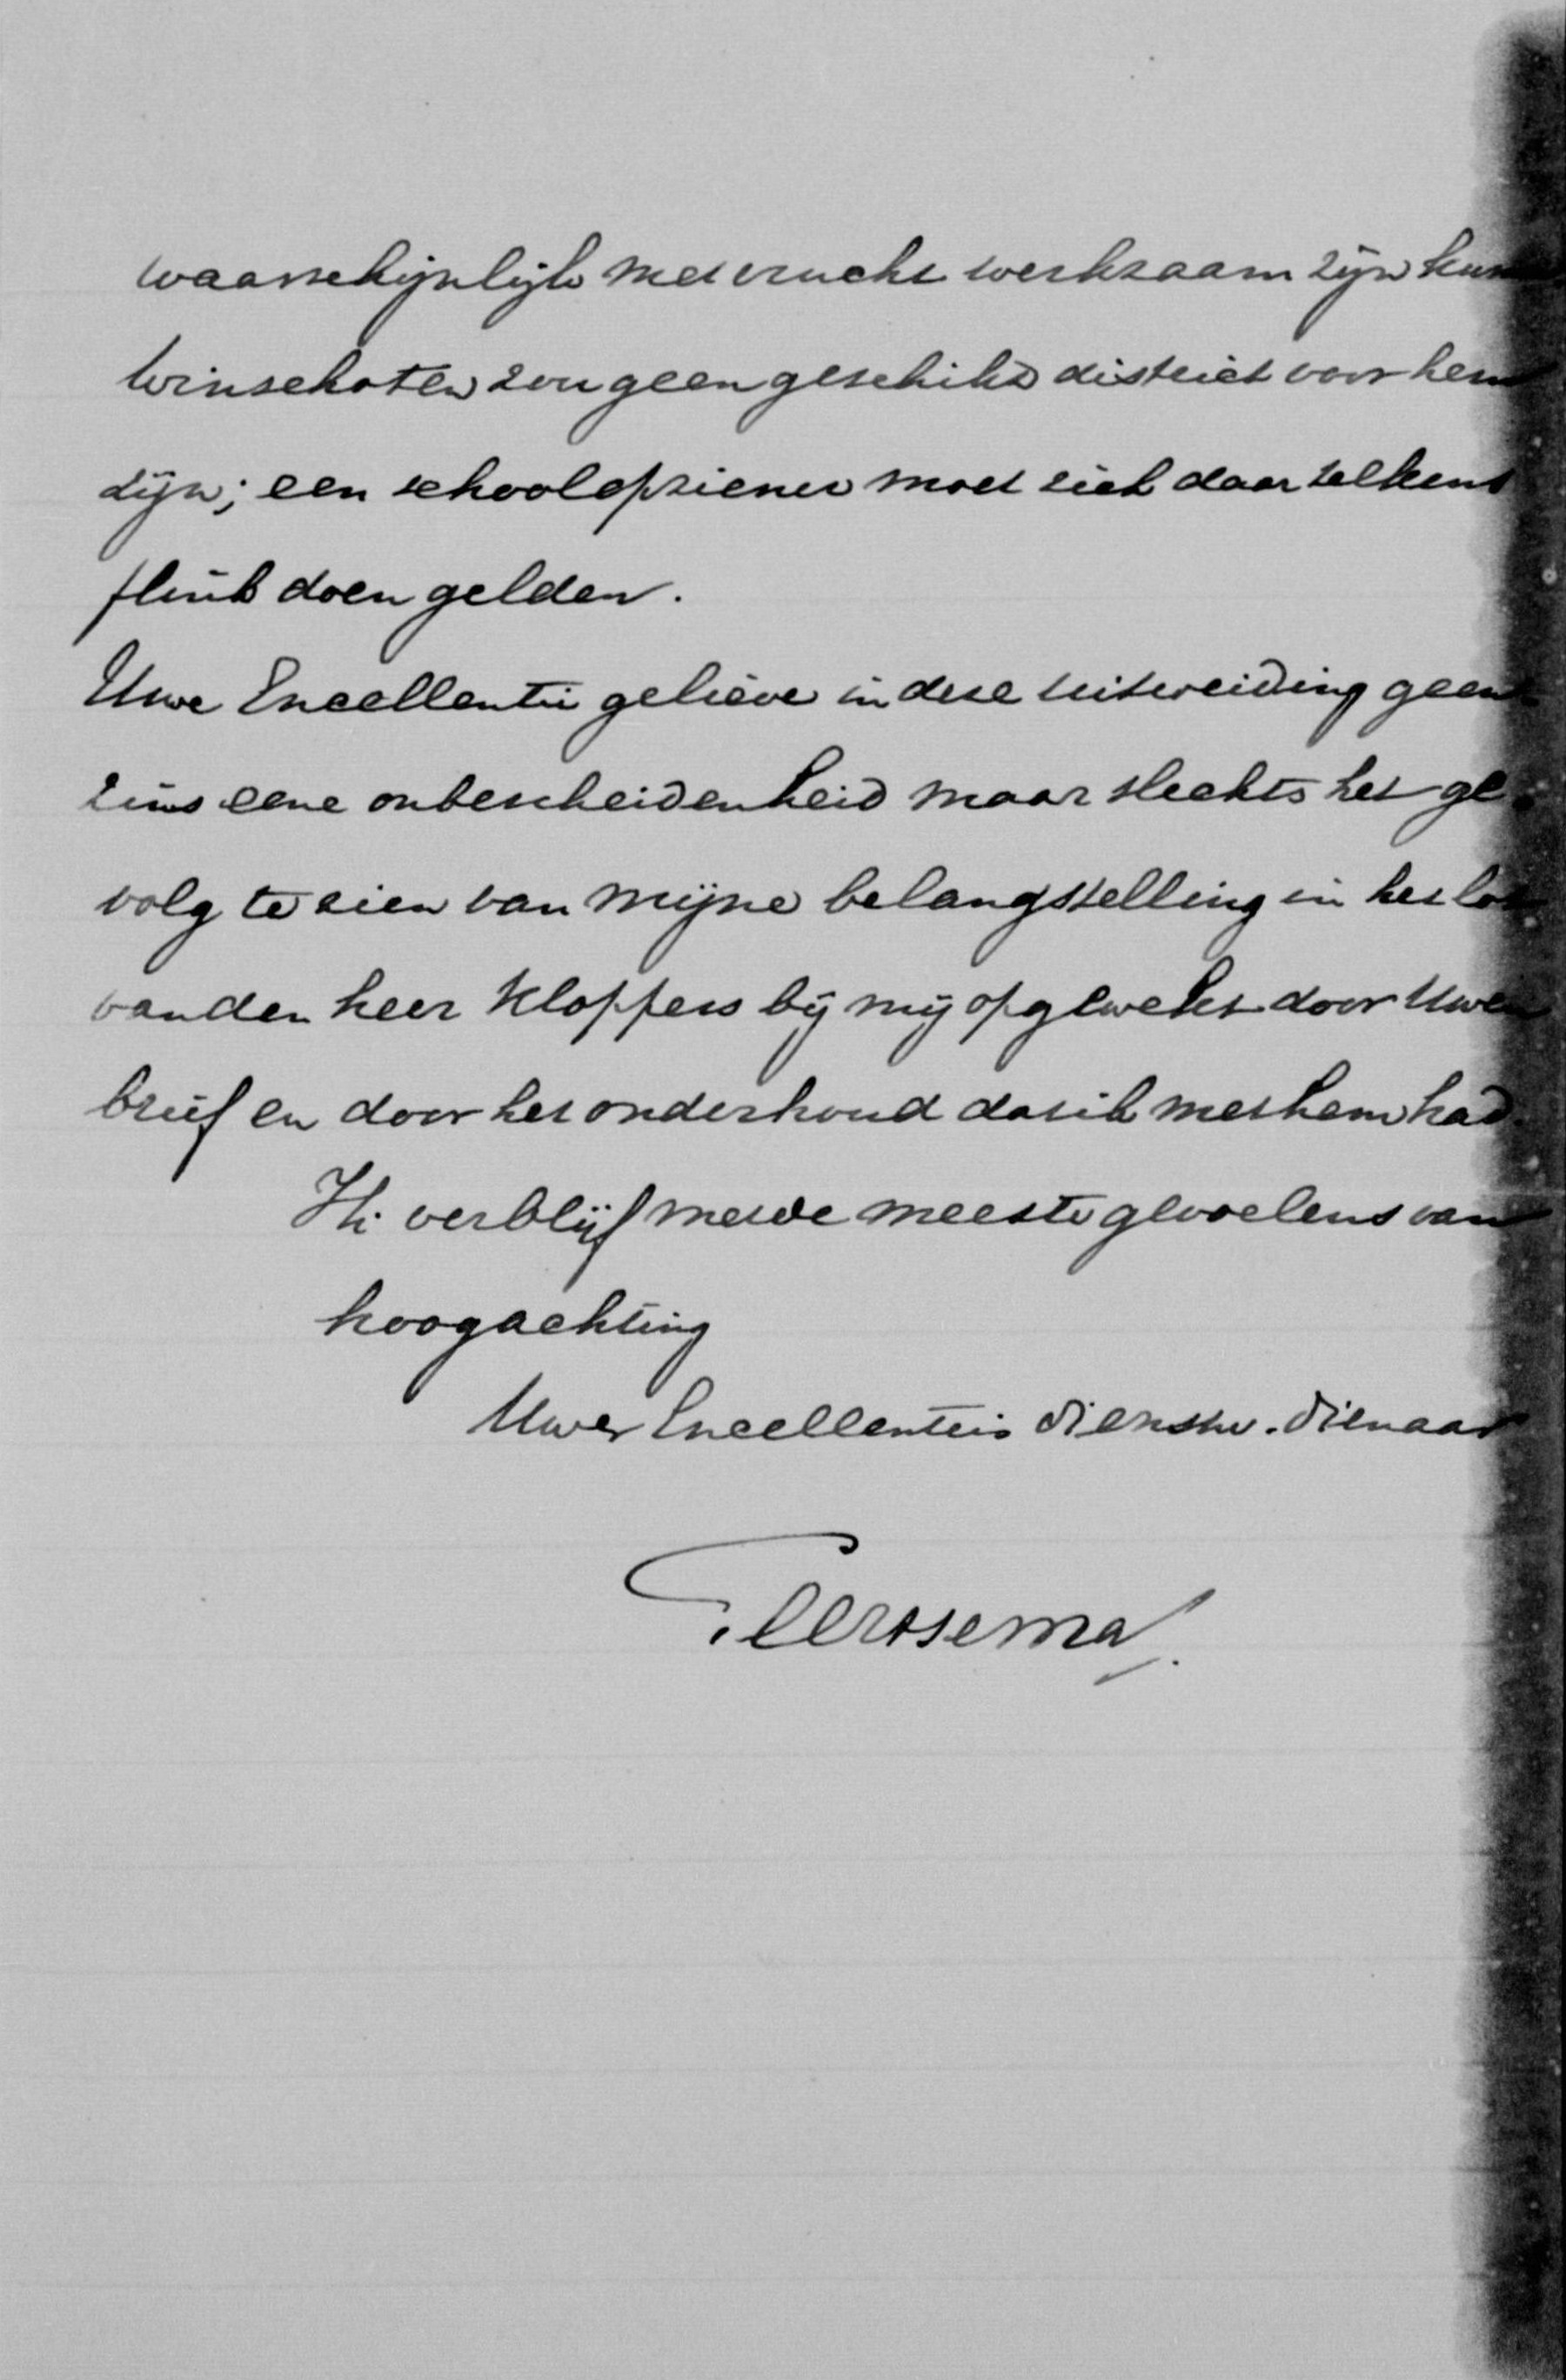 waarschijnlijk met vrucht werkzaam zijn
Winschoten zou geen geschikt district voor hem
zijn; een schoolopziener moet zich daar telkens
flink doen gelden.
Uwe Excellentie gelieve in deze uitweiding geens
zins eene onbescheidenheid maar slechts het ge-
volg te zien van mijne belangstelling in het lot
van den heer Kloppers bij mij opgewekt door Uwen
brief en door het onderhoud dat ik met hem had.
Ik verblijf met de meeste gevoelens van
hoogachting
Uwer Excellenties dienstw. dienaar